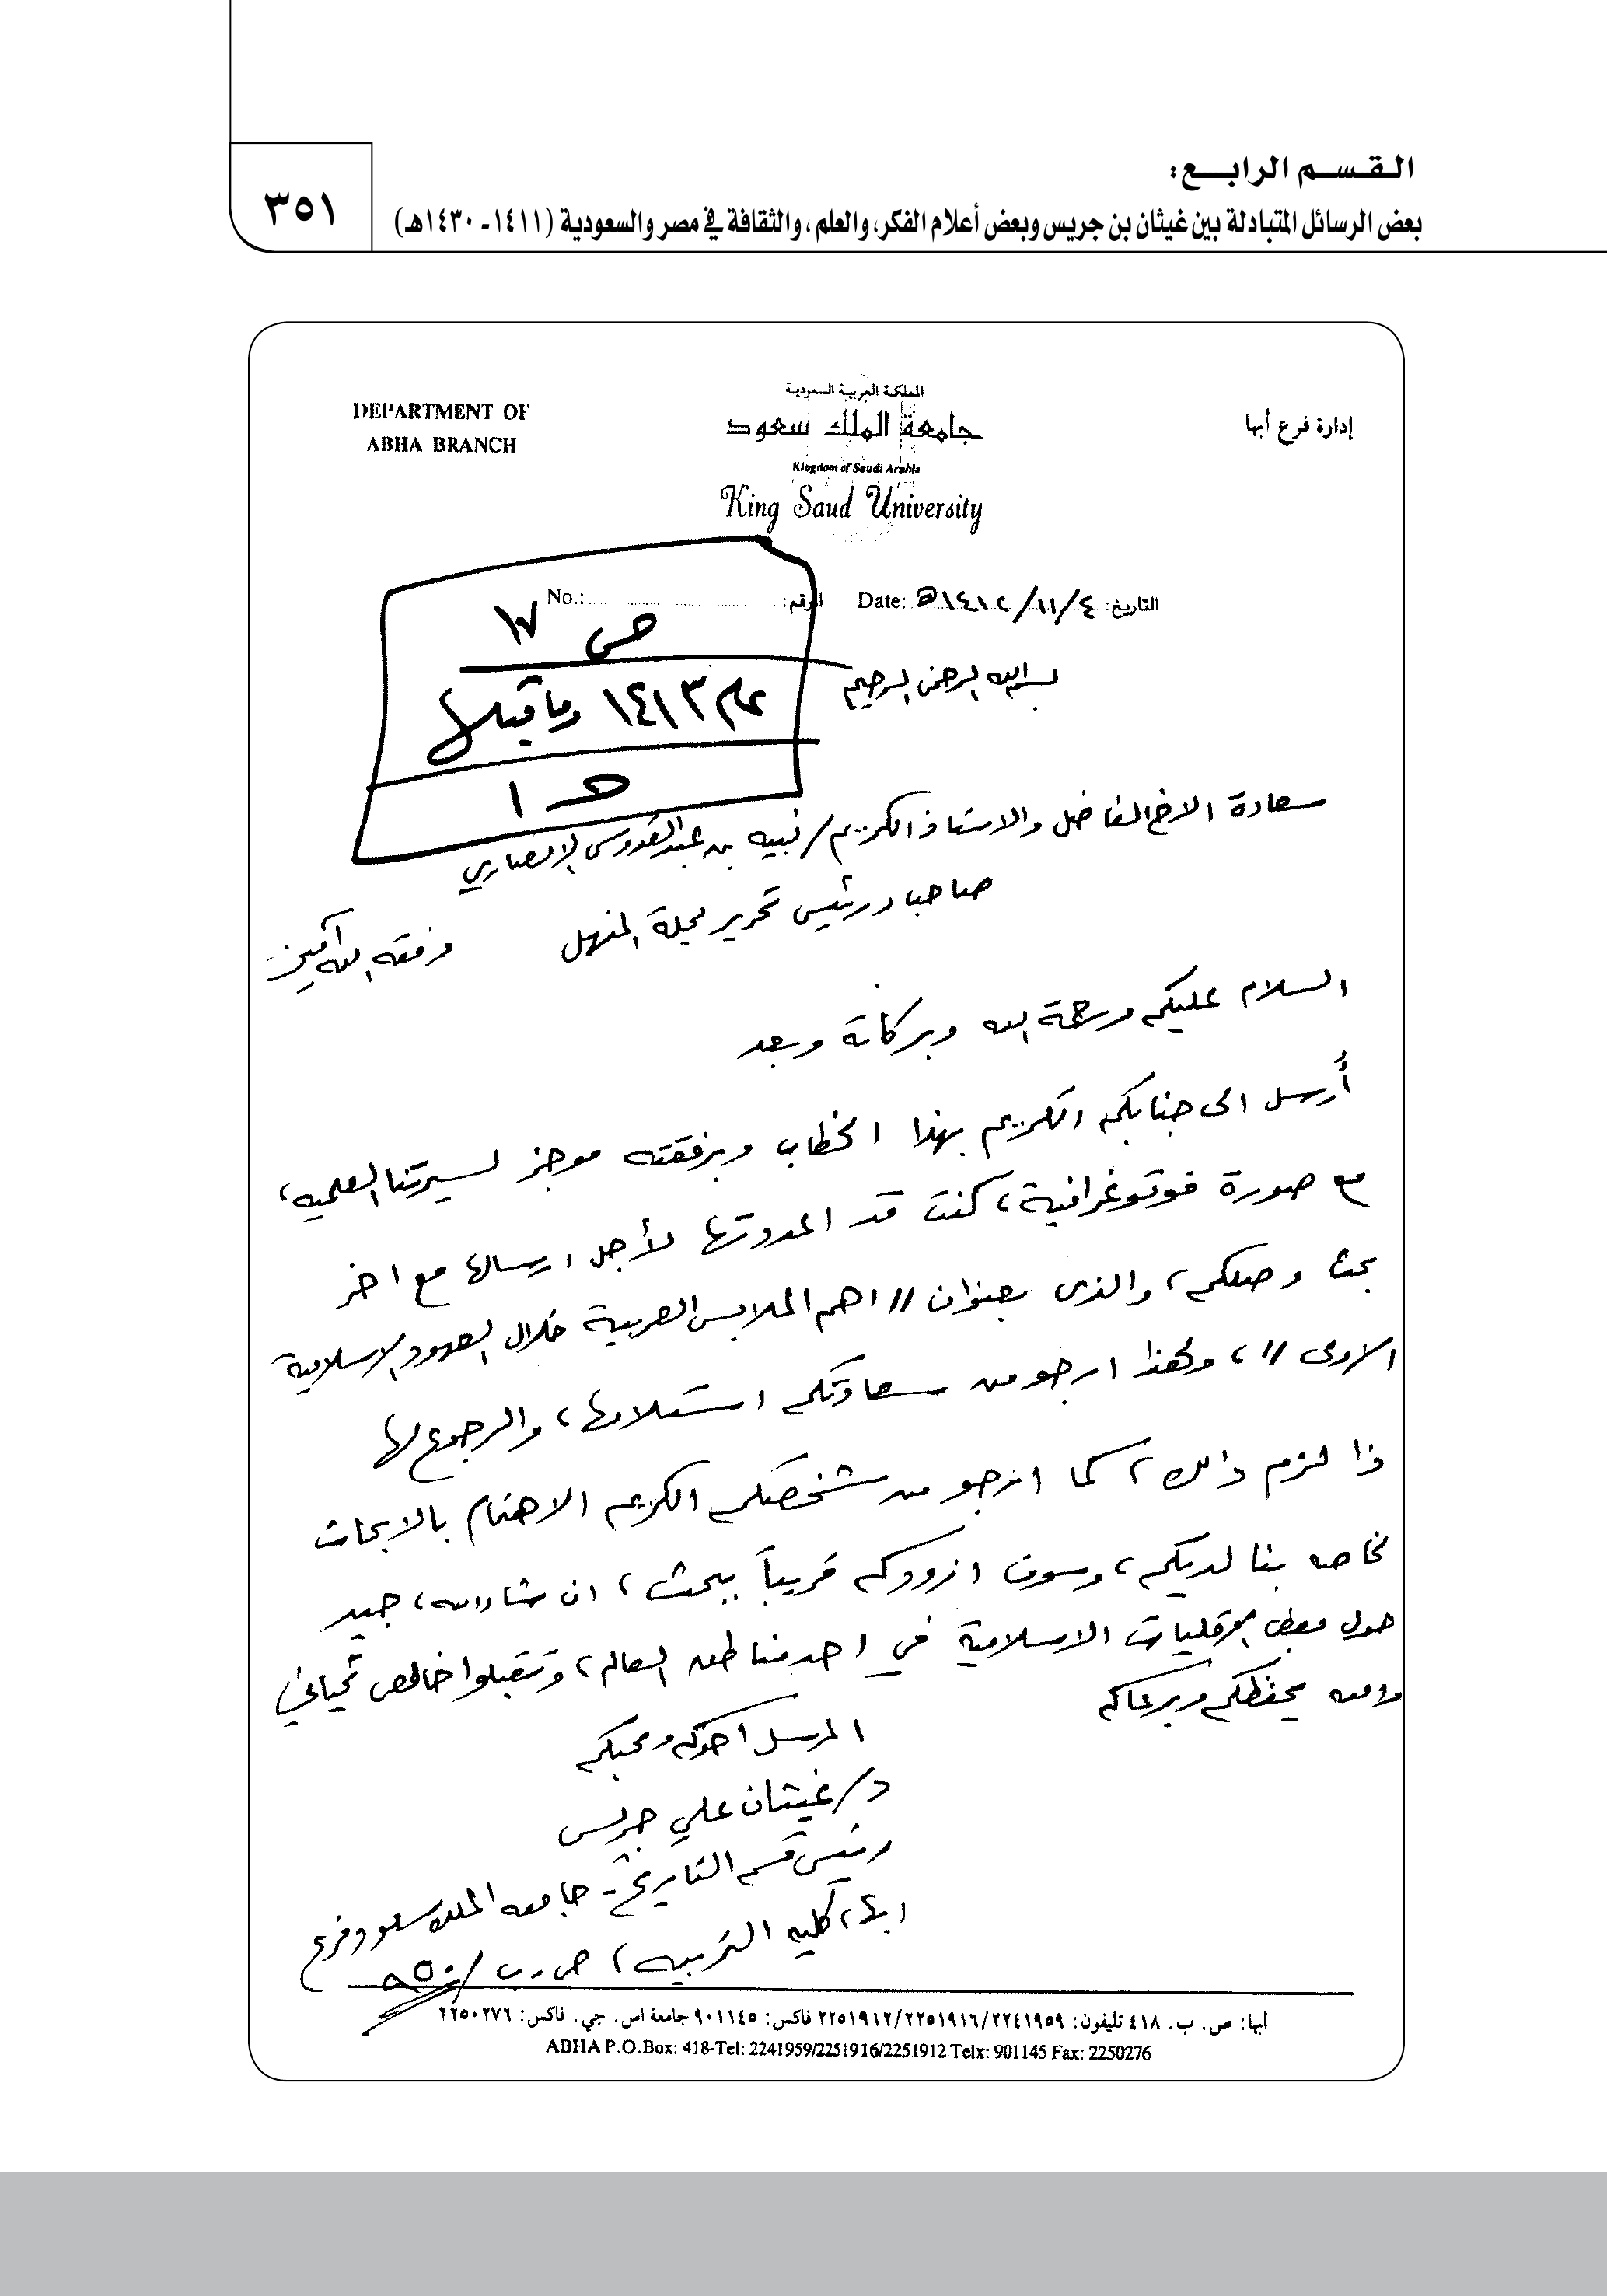 القسم الرابع:
بعض الرسائل المتبادلة بين غيثان بن جريس وبعض أعلام الفكر، والعلم، والثقافة في مصر والسعودية (١٤١١-١٤٣٠هـ)
٣٥١
المملكة العربية السعودية
جامعة الملك سعود
Kingdom of Saudi Arabia
King Saud University
إدارة فرع أبها
DEPARTMENT OF
ABHA BRANCH
التاريخ: ١٤١٢/١١/٤هـ Date:
الرقم: No.:
ص ١٧
عام ١٤١٣ وما قبلها
حـ ١
بسم الله الرحمن الرحيم
سعادة الاخ الفاضل والاستاذ الكريم/ نبيه بن عبدالقدوس الانصاري
صاحب ورئيس تحرير مجلة المنهل وفقه الله آمين
السلام عليكم ورحمة الله وبركاته وبعد
أرسل الى جنابكم الكريم بهذا الخطاب وبرفقته موجز لسيرتنا العلميه،
مع صورة فوتوغرافية، كنت قد اعددتها لأجل ارسالها مع اخر
بحث وصلكم، والذي بعنوان // اهم الملابس العربية خلال العهود الاسلامية
الاولى //، ولهذا ارجو من سعادتكم استلامها، والرجوع لها
ذا لزم ذالك، كما ارجو من شخصكم الكريم الاهتمام بالابحاث
لخاصه بنا لديكم، وسوف ازودكم قريباً ببحث، ان شاء الله، جيد
حول بعض الاقليات الاسلامية في احد مناطق العالم، وتقبلوا خالص تحياتي
والله يحفظكم ويرعاكم
المرسل اخوكم ومحبكم
د/ غيثان علي جريس
رئيس قسم التاريخ - جامعه الملك سعود فرع
ابها، كليه التربيه، ص.ب/ ٩٥٠
أبها: ص. ب. ٤١٨ تليفون: ٢٢٤١٩٥٩/٢٢٥١٩١٦/٢٢٥١٩١٢ فاكس: ٩٠١١٤٥ جامعة اس. جي. فاكس: ٢٢٥٠٢٧٦
ABHA P.O.Box: 418-Tel: 2241959/2251916/2251912 Telx: 901145 Fax: 2250276